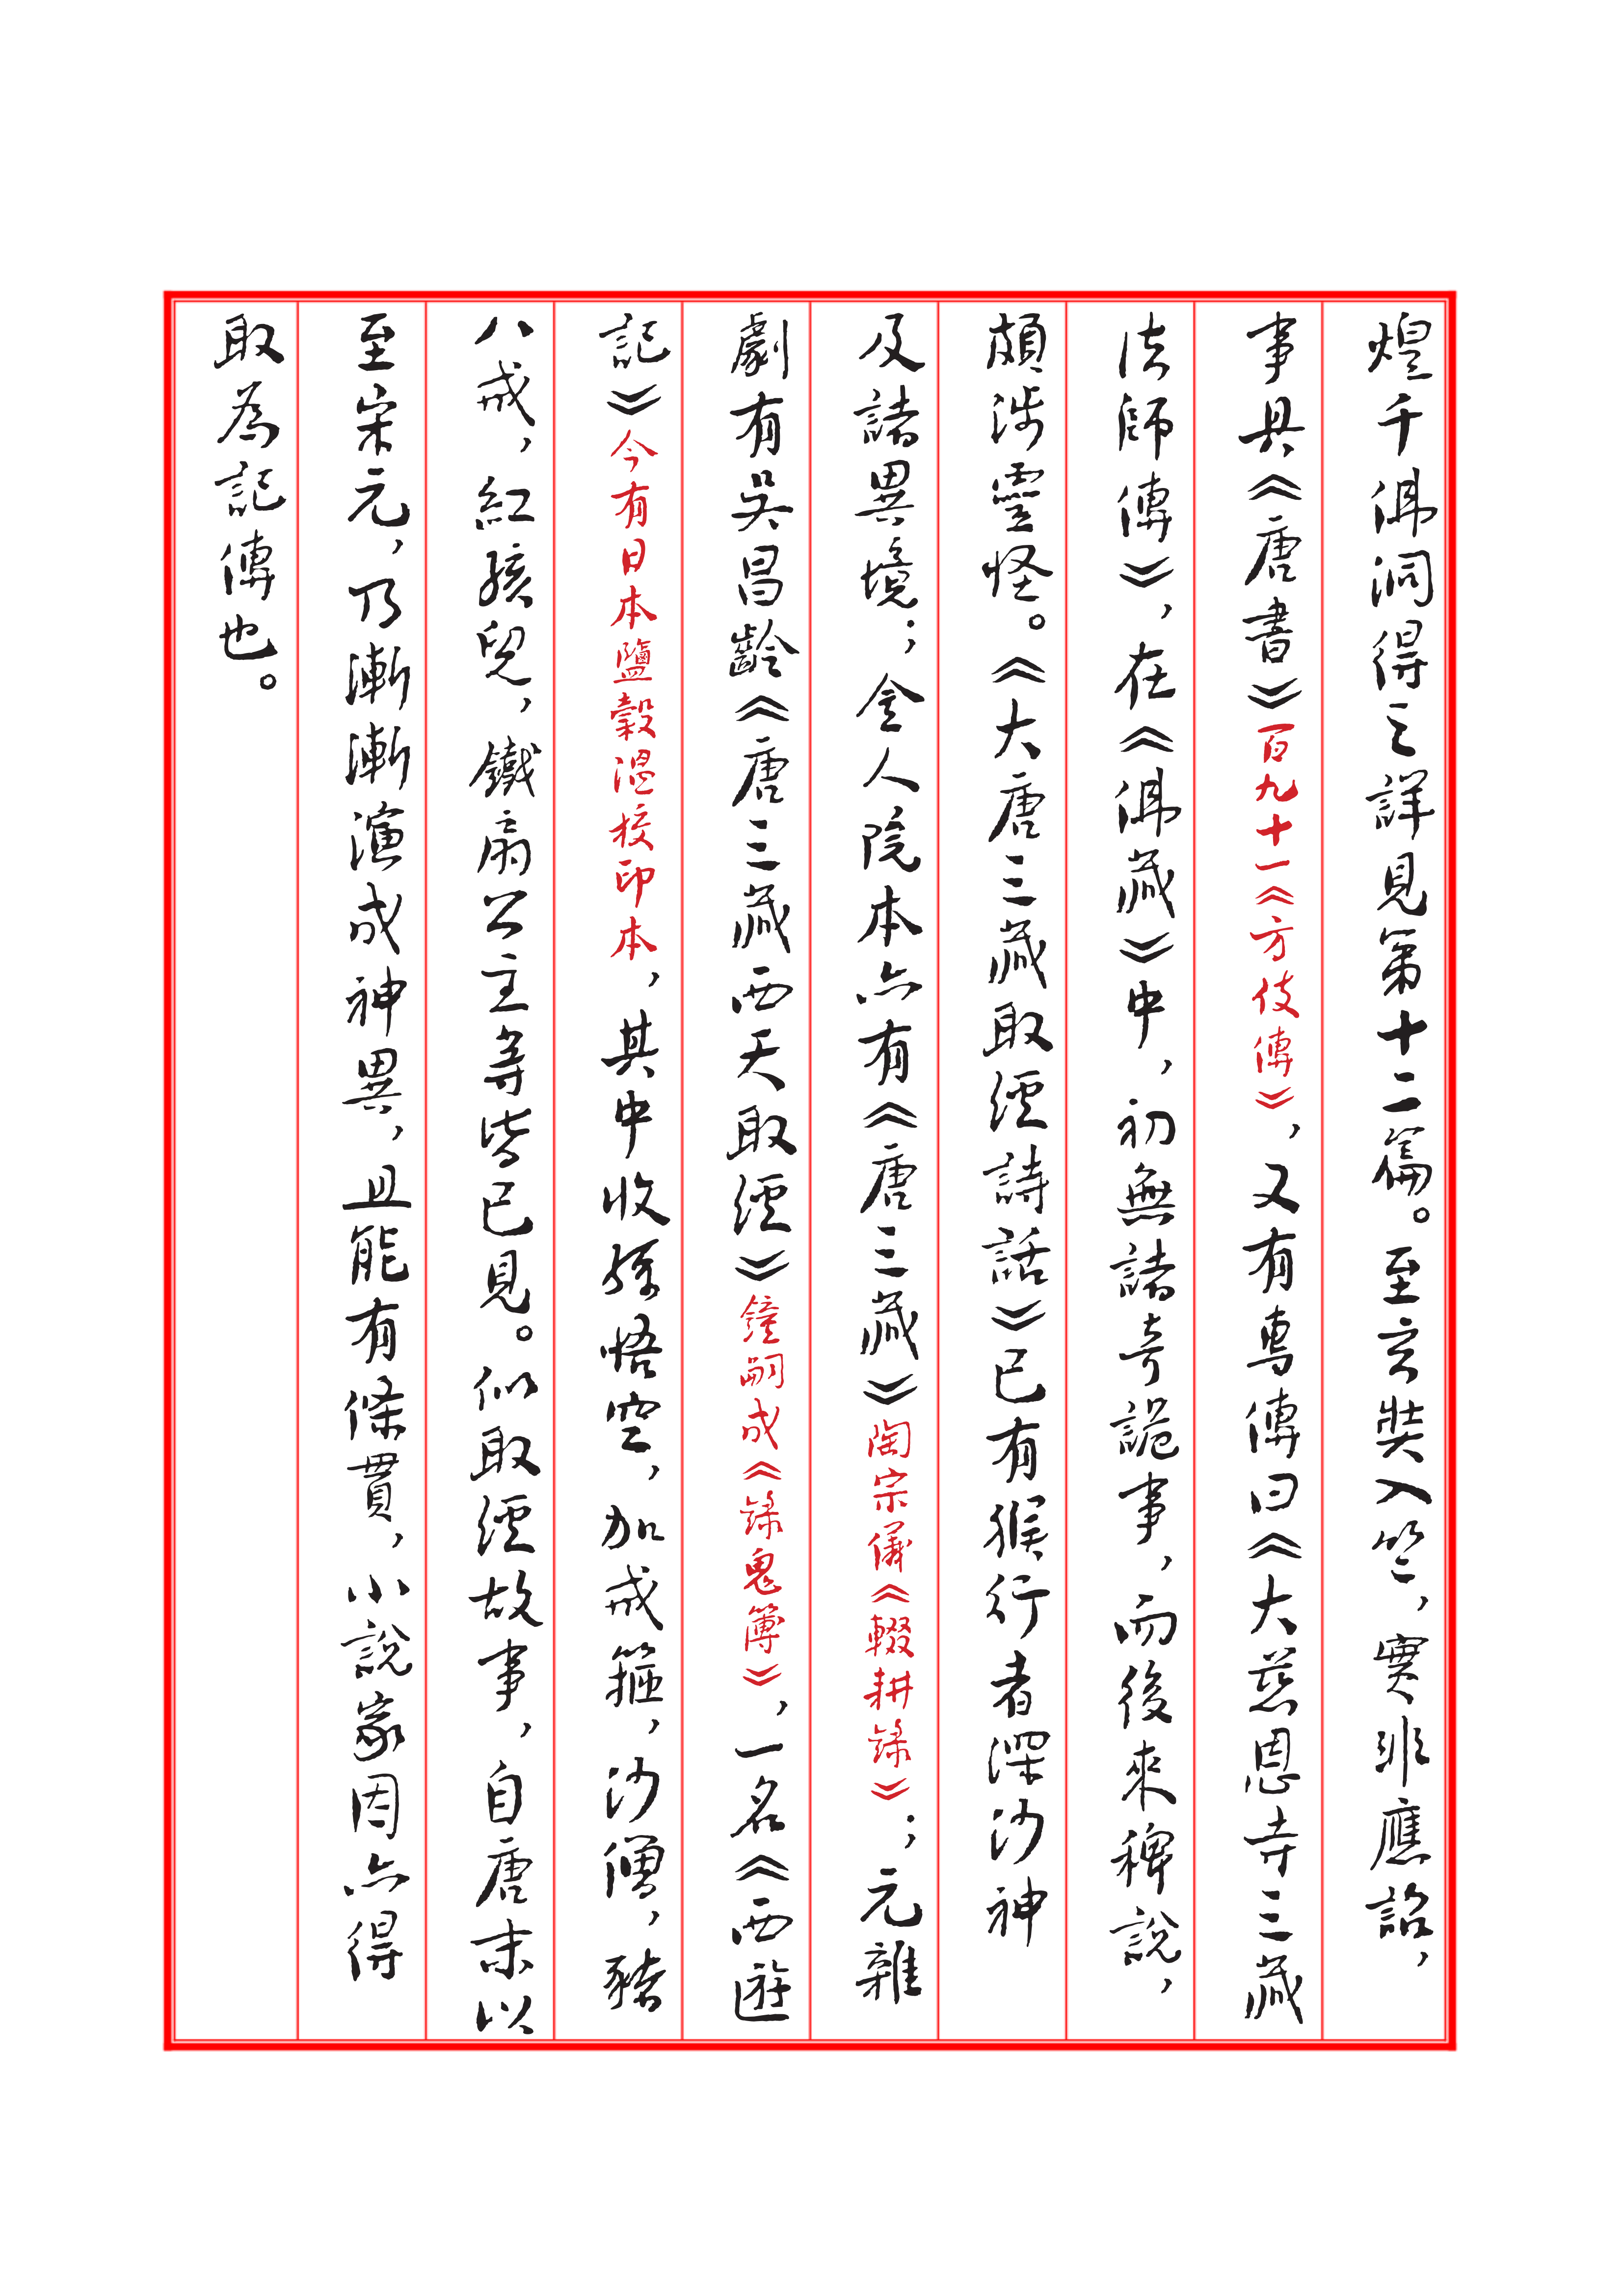 煌千佛洞得之詳見第十二篇。至玄奘入竺，實非應詔，
事具《唐書》百九十一《方伎傳》，又有專傳曰《大慈恩寺三藏
法師傳》，在《佛藏》中，初無諸奇詭事，而後來稗說，
頗涉靈怪。《大唐三藏取經詩話》已有猴行者深沙神
及諸異境；金人院本亦有《唐三藏》陶宗儀《輟耕錄》；元雜
劇有吳昌齡《唐三藏西天取經》鐘嗣成《錄鬼簿》，一名《西遊
記》今有日本鹽穀溫校印本，其中收孫悟空，加戒箍，沙僧，豬
八戒，紅孩兒，鐵扇公主等皆已見。似取經故事，自唐末以
至宋元，乃漸漸演成神異，且能有條貫，小說家因亦得
取為記傳也。